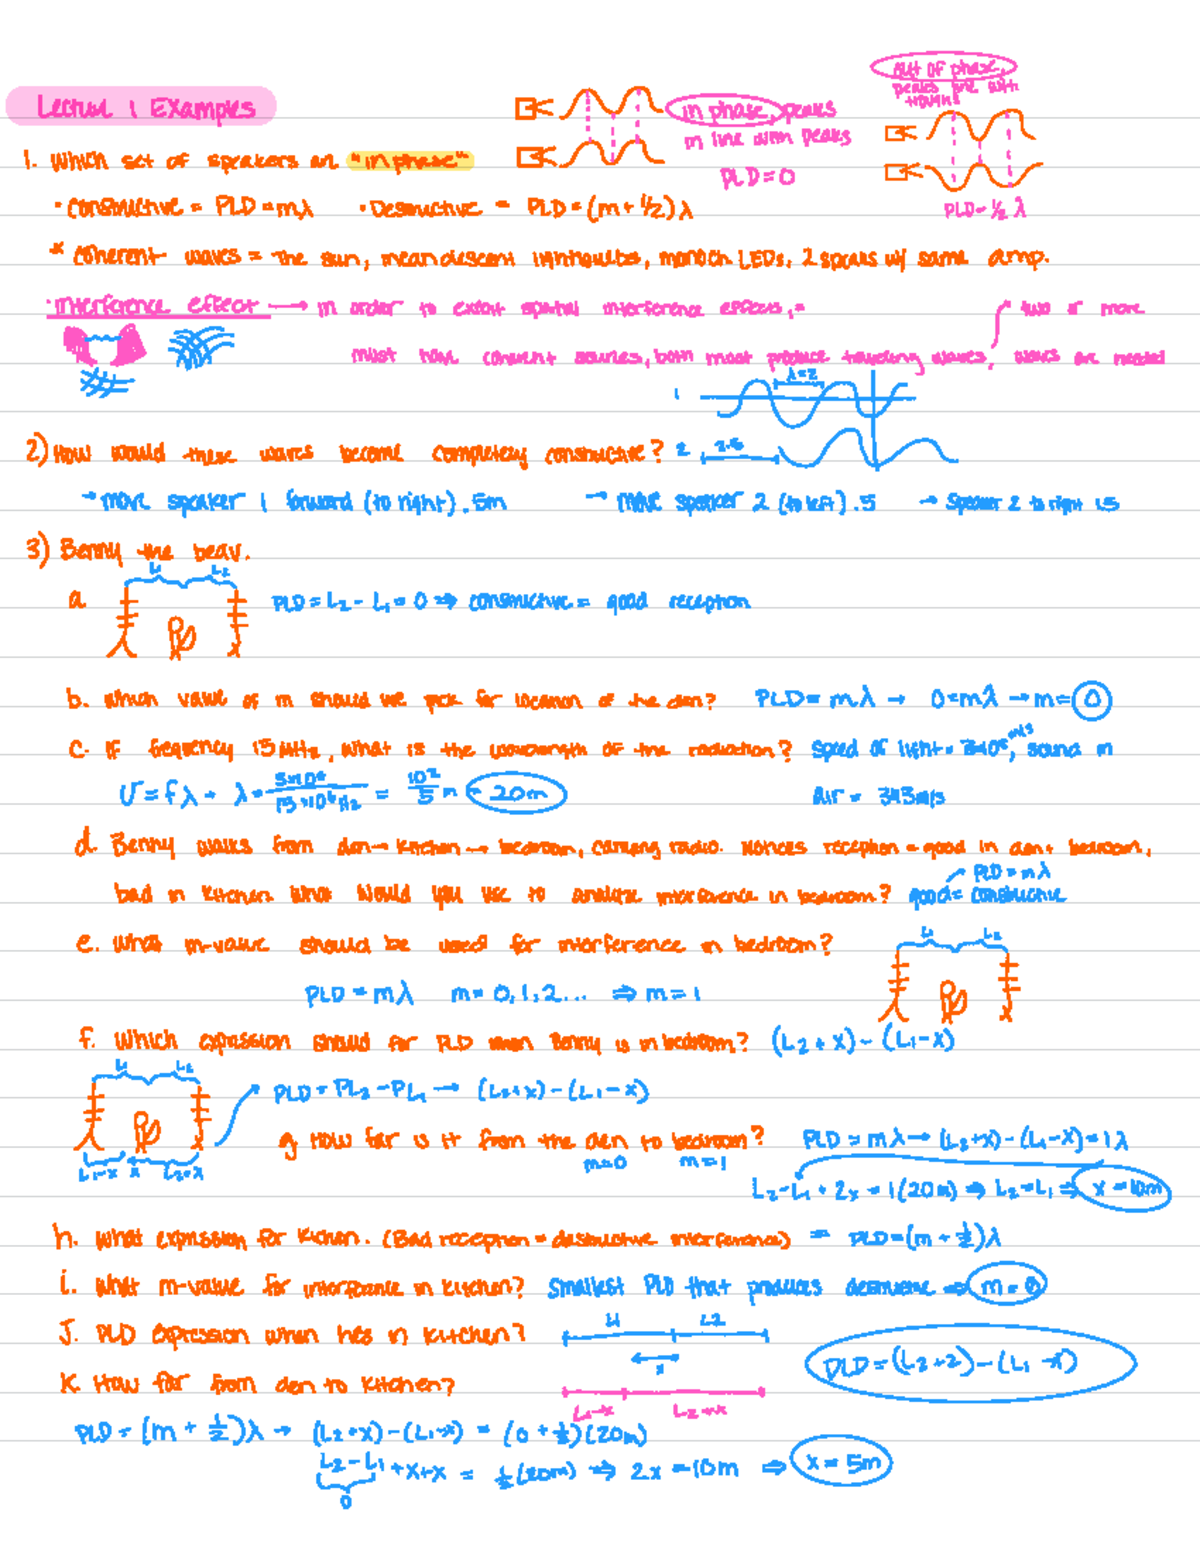 Lecture 1 Examples
in phase, peaks
in line with peaks
PLD=0
out of phase,
peaks line with
troughs
PLD=½ λ
1. Which set of speakers are "in phase"
· constructive = PLD=mλ · Destructive = PLD=(m+½)λ
* Coherent waves = The sun, , 2 speaks w/ same amp.
· interference effect → in order to exhibit spatial interference effects, =
must have coherent sources, both must produce traveling waves,
two or more
waves are needed
1 λ=2
2 2.5
2) How would these waves become completely constructive?
→ move speaker 1 forward (to right) .5m → move speaker 2 (to left) .5 → Speaker 2 to right 1.5
3) Benny the beav.
L1 L2
a PLD = L2 - L1 = 0 ⇒ constructive = good reception
b. which value of m should we pick for location of the den? PLD= mλ → 0=mλ → m= 0
c. If frequency 15 MHz, what is the wavelength of the radiation? speed of light = 3×10⁸ m/s, sound in
air = 343m/s
v = fλ → λ = 3×10⁸ / 15×10⁶Hz = 10²/5 m = 20m
d. Benny walks from den → kitchen → bedroom, carrying radio. Notices reception = good in den + bedroom,
bad in kitchen. What would you use to analyze interference in bedroom? good = constructive
PLD = mλ
e. What m-value should be used for interference in bedroom?
L1 L2
PLD = mλ m= 0,1,2... ⇒ m=1
f. Which expression should for PLD when Benny is in bedroom? (L2 + x) - (L1-x)
L1 L2
PLD = PL2 - PL1 → (L2+x) - (L1-x)
L1-x x L2+x
g How far is it from the den to bedroom?
m=0 m=1
PLD = mλ → (L2+x)-(L1-x)=1λ
L2-L1 + 2x = 1(20m) ⇒ L2=L1 ⇒ x = 10m
h. What expression for kitchen. (Bad reception = destructive interference) = PLD=(m + ½)λ
i. What m-value for interference in kitchen? Smallest PLD that produces destructive ⇒ m = 0
J. PLD expression when hes in kitchen?
L1 L2
x
PLD=(L2+2)-(L1-x)
K. How far from den to kitchen?
L1-x L2+x
PLD = (m + ½)λ → (L2+x)-(L1-x) = (0+½)(20m)
L2-L1 +x+x = ½(20m) ⇒ 2x =10m ⇒ x= 5m
0